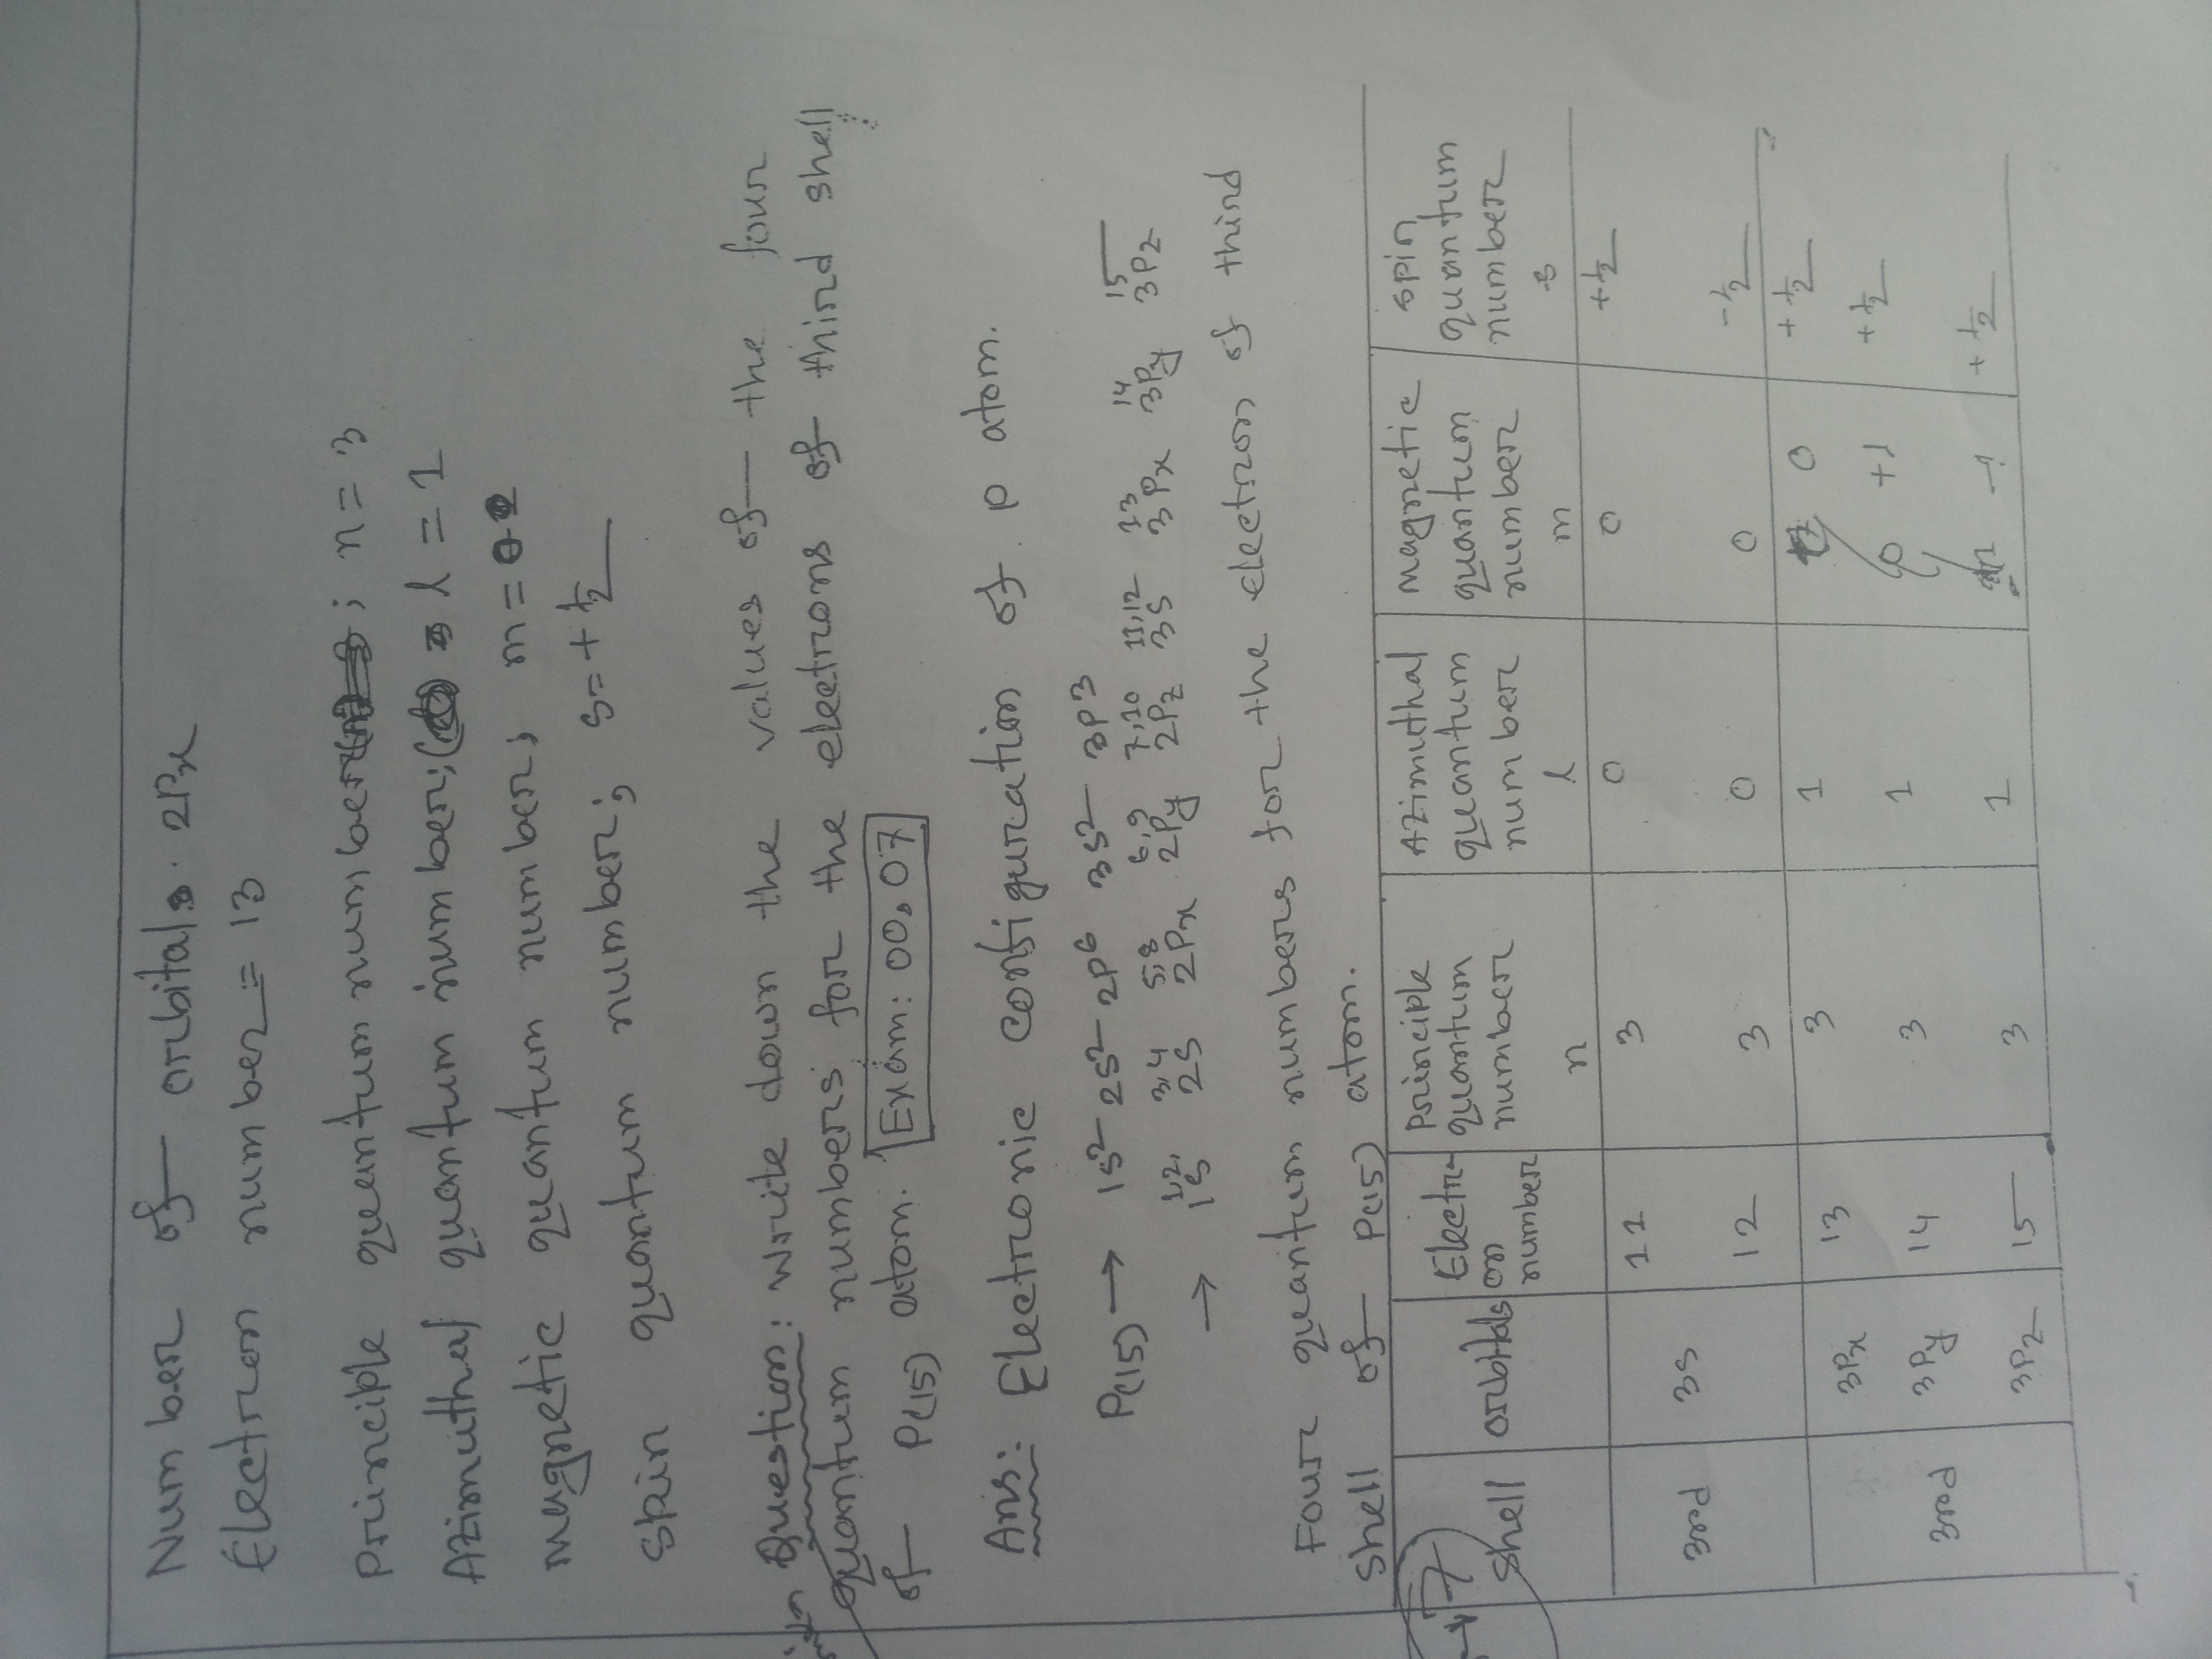 Number of orbitals. 2Px
Electron number = 13
Principle quantum number; n = 3
Azimuthal quantum number; l = 1
magnetic quantum number; m = 0
Spin quantum number; s = + 1/2
Question: Write down the values of the four
quantum numbers for the electrons of third shell
of P(15) atom. Exam: 00, 07
Ans: Electronic configuration of p atom.
P(15) → 1s² 2s² 2P⁶ 3s² 3P³
1,2, 3,4 5,8 6,9 7,10 11,12 13 14 15
→ 1s 2s 2Px 2Py 2Pz 3s 3Px 3Py 3Pz
Four quantum numbers for the electron of third
shell of P(15) atom.
7
Shell orbitals Electr-on number Principle quantum number n Azimuthal quantum number l Magnetic quantum number m Spin quantum number s
3rd 3s 11 3 0 0 +1/2
12 3 0 0 -1/2
3rd 3Px 13 3 1 0 +1/2
3Py 14 3 1 0 +1 +1/2
3Pz 15 3 1 -1 +1/2